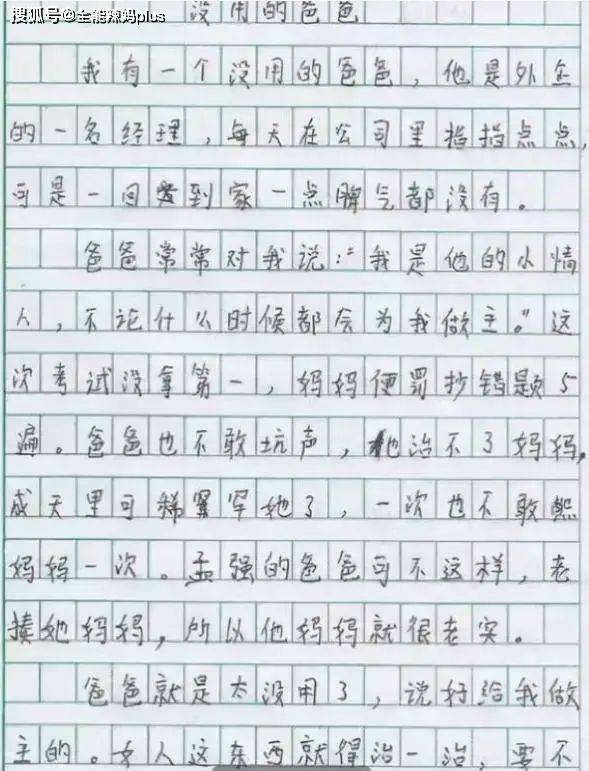 搜狐号@全能辣妈plus
没用的爸爸
我有一个没用的爸爸，他是外企
的一名经理，每天在公司里指指点点，
可是一回到家一点脾气都没有。
爸爸常常对我说：“我是他的小情
人，不论什么时候都会为我做主。”这
次考试没拿第一，妈妈便罚抄错题5
遍。爸爸也不敢坑声，他治不了妈妈，
成天里可稀罕她了，一次也不敢熊
妈妈一次。孟强的爸爸可不这样，老
揍她妈妈，所以他妈妈就很老实。
爸爸就是太没用了，说好给我做
主的。女人这东西就得治一治，要不